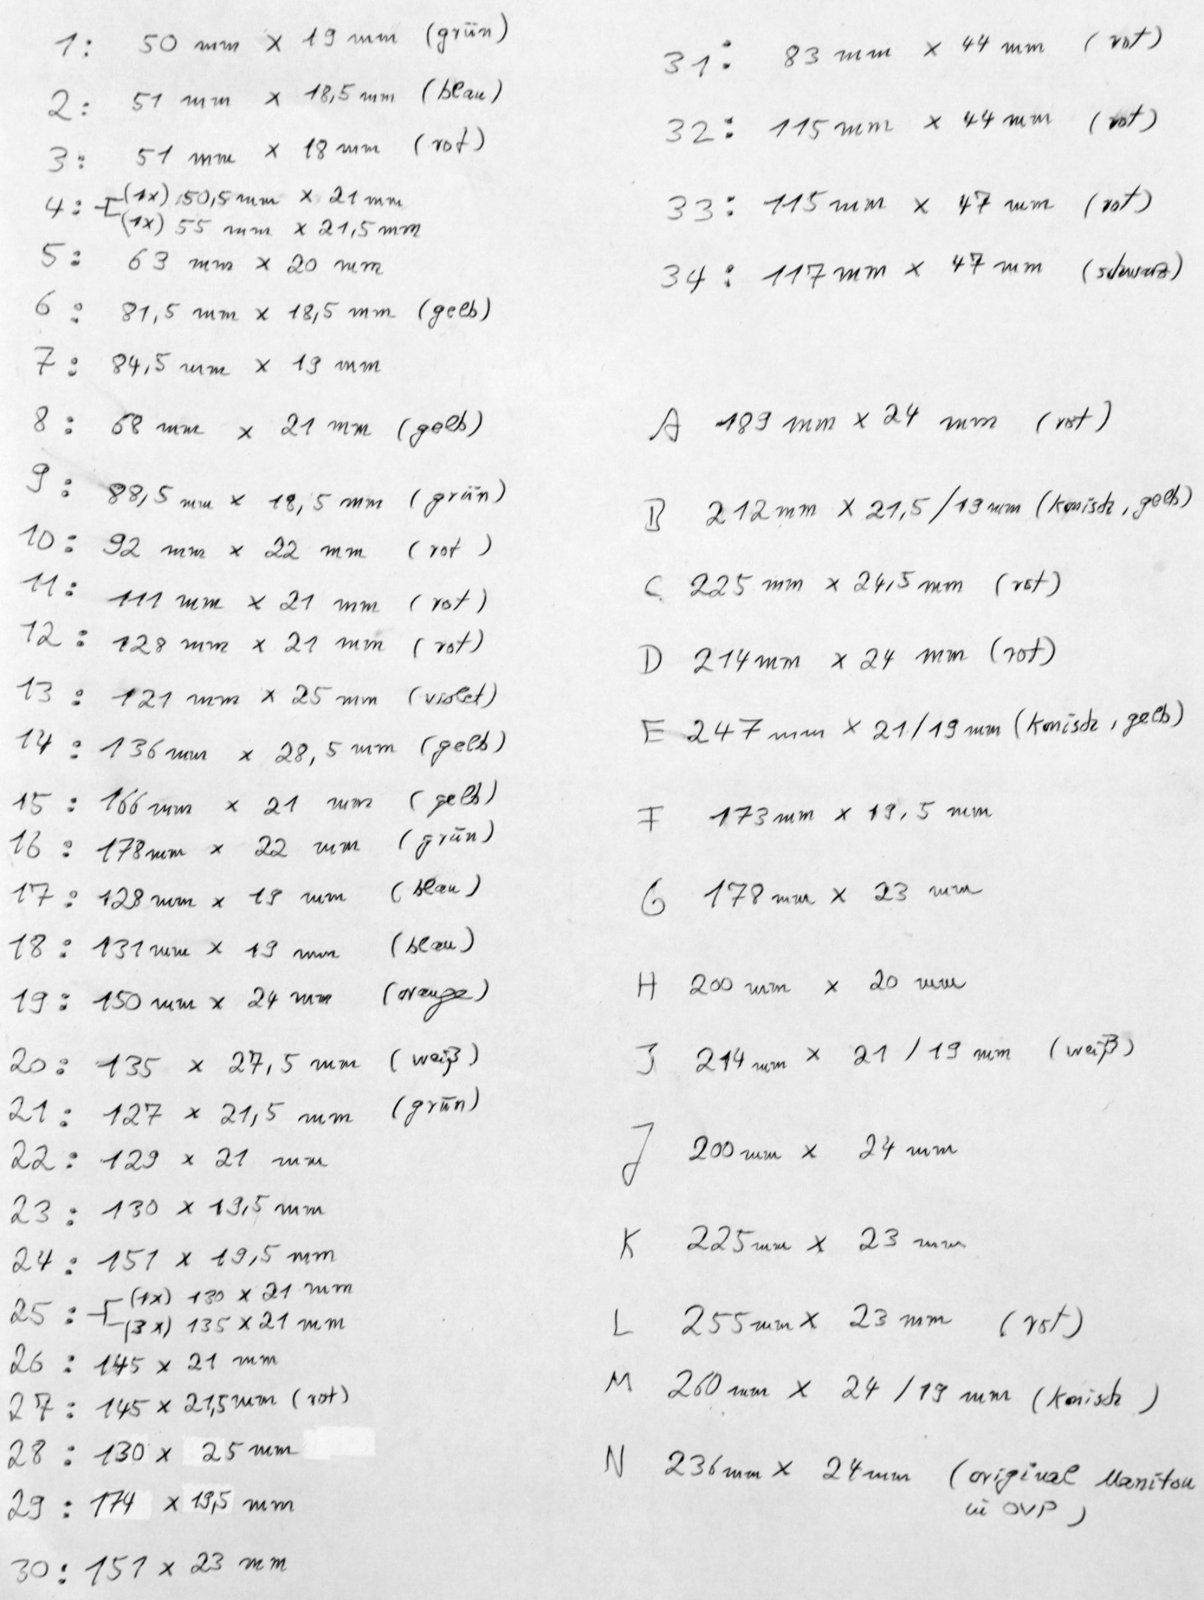 1: 50 mm x 19 mm (grün)
2: 51 mm x 18,5 mm (blau)
3: 51 mm x 18 mm (rot)
4: (1x) 50,5 mm x 21 mm
(1x) 55 mm x 21,5 mm
5: 63 mm x 20 mm
6: 81,5 mm x 18,5 mm (gelb)
7: 84,5 mm x 19 mm
8: 68 mm x 21 mm (gelb)
9: 88,5 mm x 18,5 mm (grün)
10: 92 mm x 22 mm (rot)
11: 111 mm x 21 mm (rot)
12: 128 mm x 21 mm (rot)
13: 121 mm x 25 mm (violet)
14: 136 mm x 28,5 mm (gelb)
15: 166 mm x 21 mm (gelb)
16: 178 mm x 22 mm (grün)
17: 128 mm x 19 mm (blau)
18: 131 mm x 19 mm (blau)
19: 150 mm x 24 mm (orange)
20: 135 x 27,5 mm (weiß)
21: 127 x 21,5 mm (grün)
22: 129 x 21 mm
23: 130 x 19,5 mm
24: 151 x 19,5 mm
25: (1x) 130 x 21 mm
(3x) 135 x 21 mm
26: 145 x 21 mm
27: 145 x 21,5 mm (rot)
28: 130 x 25 mm
29: 174 x 19,5 mm
30: 151 x 23 mm
31: 83 mm x 44 mm (rot)
32: 115 mm x 44 mm (rot)
33: 115 mm x 47 mm (rot)
34: 117 mm x 47 mm (schwarz)
A 189 mm x 24 mm (rot)
B 212 mm x 21,5/19 mm (konisch, gelb)
C 225 mm x 24,5 mm (rot)
D 214 mm x 24 mm (rot)
E 247 mm x 21/19 mm (konisch, gelb)
F 173 mm x 19,5 mm
G 178 mm x 23 mm
H 200 mm x 20 mm
I 214 mm x 21/19 mm (weiß)
J 200 mm x 24 mm
K 225 mm x 23 mm
L 255 mm x 23 mm (rot)
M 260 mm x 24/19 mm (konisch)
N 236 mm x 24 mm (original Manitou
in OVP)